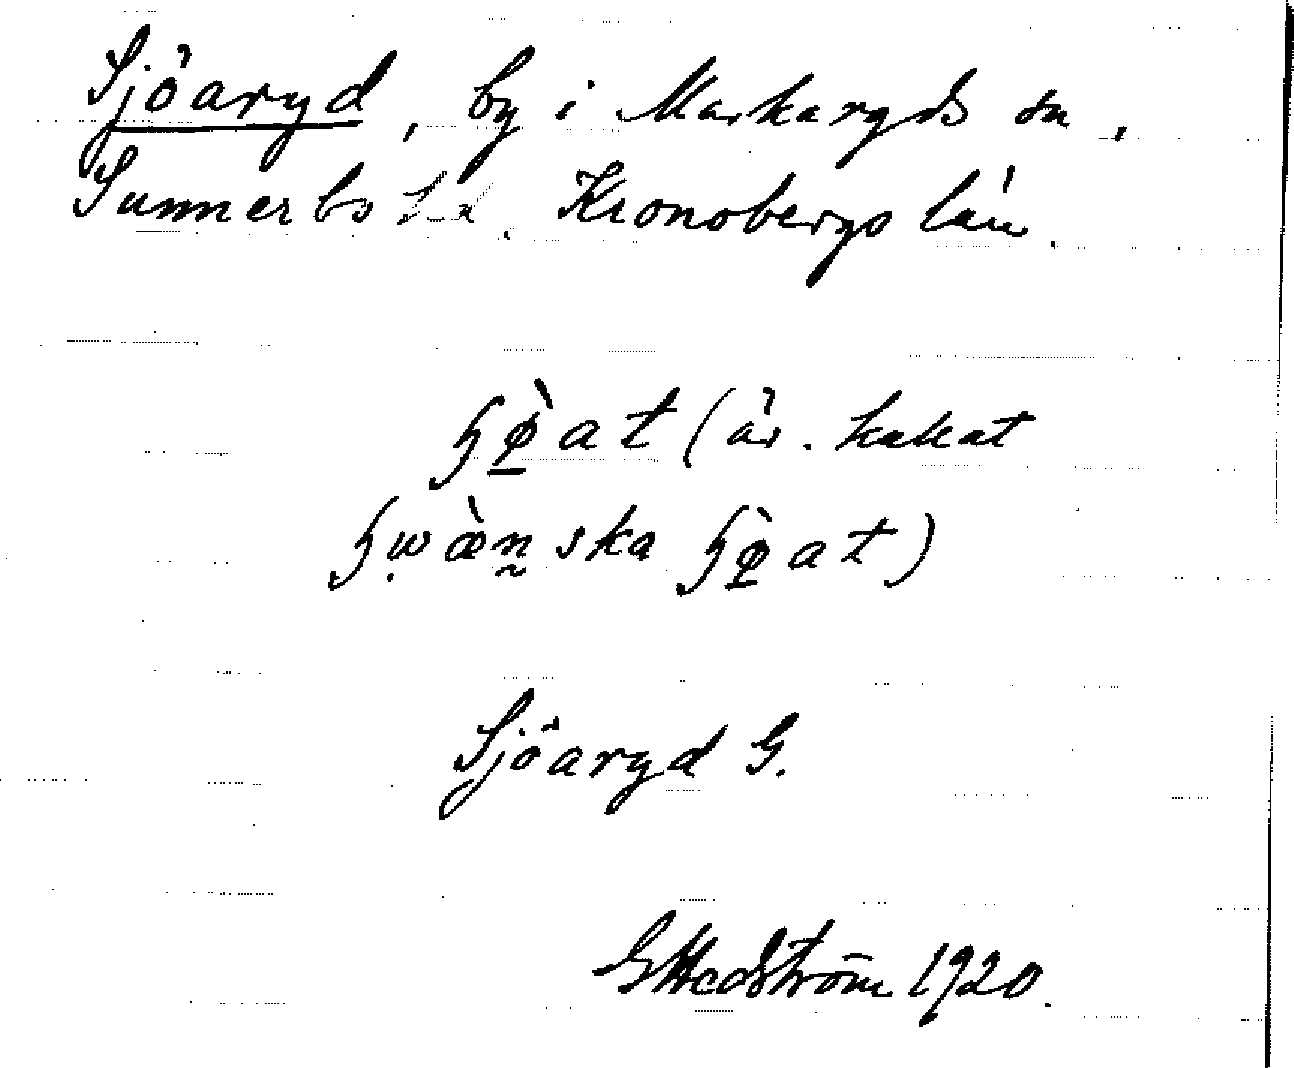 Sjöaryd, by i Markaryds sn,
Sunnerbo hd. Kronobergs län.
ɧø̠̀at (äv. kallat
ɧẉæ̀n̰ska ɧø̠̀at)
Sjöaryd G.
G Hedström 1920.